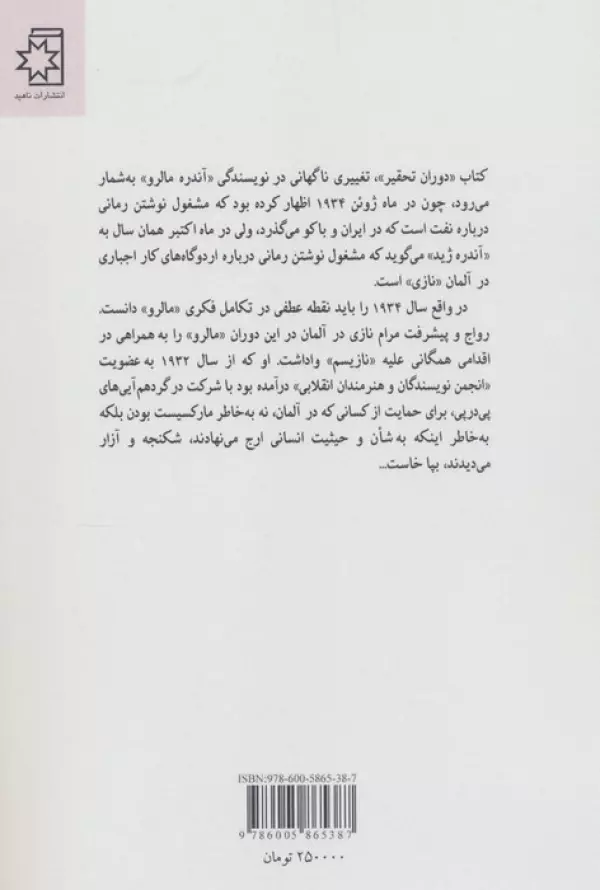 انتشارات ناهید
کتاب «دوران تحقیر»، تغییری ناگهانی در نویسندگی «آندره مالرو» به‌شمار
می‌رود، چون در ماه ژوئن ۱۹۳۴ اظهار کرده بود که مشغول نوشتن رمانی
درباره نفت است که در ایران و باکو می‌گذرد، ولی در ماه اکتبر همان سال به
«آندره ژید» می‌گوید که مشغول نوشتن رمانی درباره اردوگاه‌های کار اجباری
در آلمان «نازی» است.
در واقع سال ۱۹۳۴ را باید نقطه عطفی در تکامل فکری «مالرو» دانست.
رواج و پیشرفت مرام نازی در آلمان در این دوران «مالرو» را به همراهی در
اقدامی همگانی علیه «نازیسم» واداشت. او که از سال ۱۹۳۲ به عضویت
«انجمن نویسندگان و هنرمندان انقلابی» درآمده بود با شرکت در گردهم‌آیی‌های
پی‌درپی، برای حمایت از کسانی که در آلمان، نه به‌خاطر مارکسیست بودن بلکه
به‌خاطر اینکه به شأن و حیثیت انسانی ارج می‌نهادند، شکنجه و آزار
می‌دیدند، بپا خاست...
ISBN:978-600-5865-38-7
9 786005 865387
۲۵۰۰۰۰ تومان